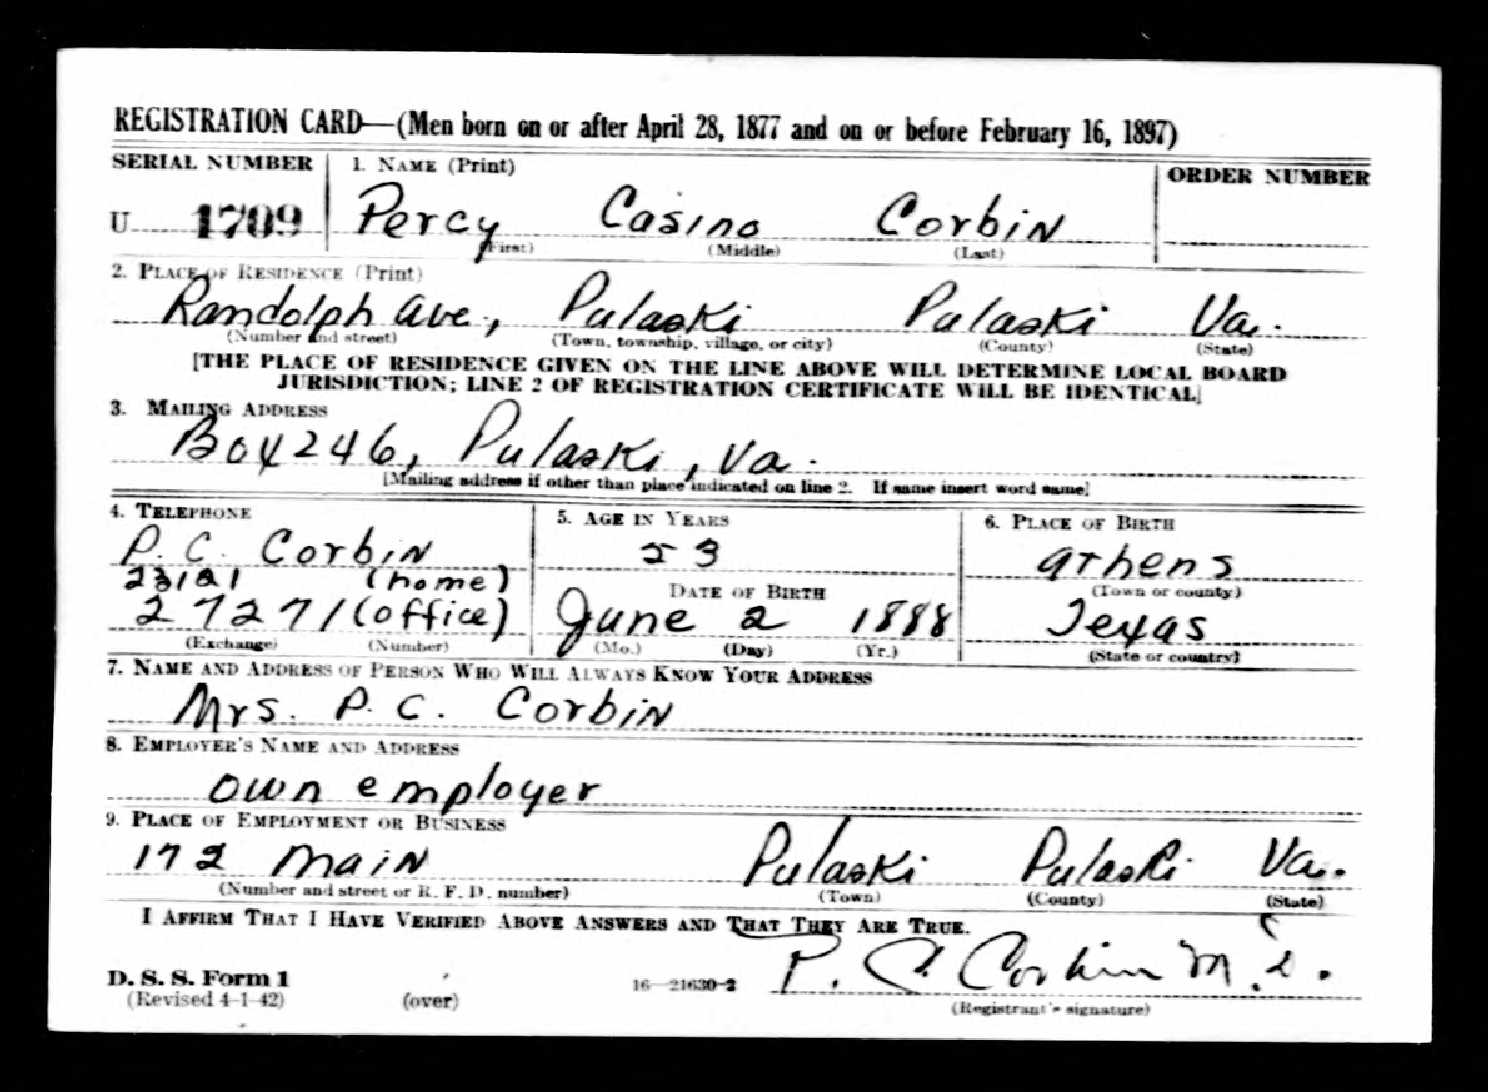 REGISTRATION CARD—(Men born on or after April 28, 1877 and on or before February 16, 1897)
SERIAL NUMBER
1. NAME (Print)
ORDER NUMBER
U 1709
Percy Casino Corbin
(First) (Middle) (Last)
2. PLACE OF RESIDENCE (Print)
Randolph Ave, Pulaski Pulaski Va.
(Number and street) (Town, township, village, or city) (County) (State)
[THE PLACE OF RESIDENCE GIVEN ON THE LINE ABOVE WILL DETERMINE LOCAL BOARD
JURISDICTION; LINE 2 OF REGISTRATION CERTIFICATE WILL BE IDENTICAL]
3. MAILING ADDRESS
Box 246, Pulaski, Va.
[Mailing address if other than place indicated on line 2. If same insert word same]
4. TELEPHONE
P. C. Corbin
23121 (home)
27271 (office)
(Exchange) (Number)
5. AGE IN YEARS
53
DATE OF BIRTH
June 2 1888
(Mo.) (Day) (Yr.)
6. PLACE OF BIRTH
Athens
(Town or county)
Texas
(State or country)
7. NAME AND ADDRESS OF PERSON WHO WILL ALWAYS KNOW YOUR ADDRESS
Mrs. P. C. Corbin
8. EMPLOYER'S NAME AND ADDRESS
own employer
9. PLACE OF EMPLOYMENT OR BUSINESS
172 Main Pulaski Pulaski Va.
(Number and street or R. F. D. number) (Town) (County) (State)
I AFFIRM THAT I HAVE VERIFIED ABOVE ANSWERS AND THAT THEY ARE TRUE.
P. C. Corbin M.D.
D. S. S. Form 1
(Revised 4-1-42) (over) 16—21630-2
(Registrant's signature)